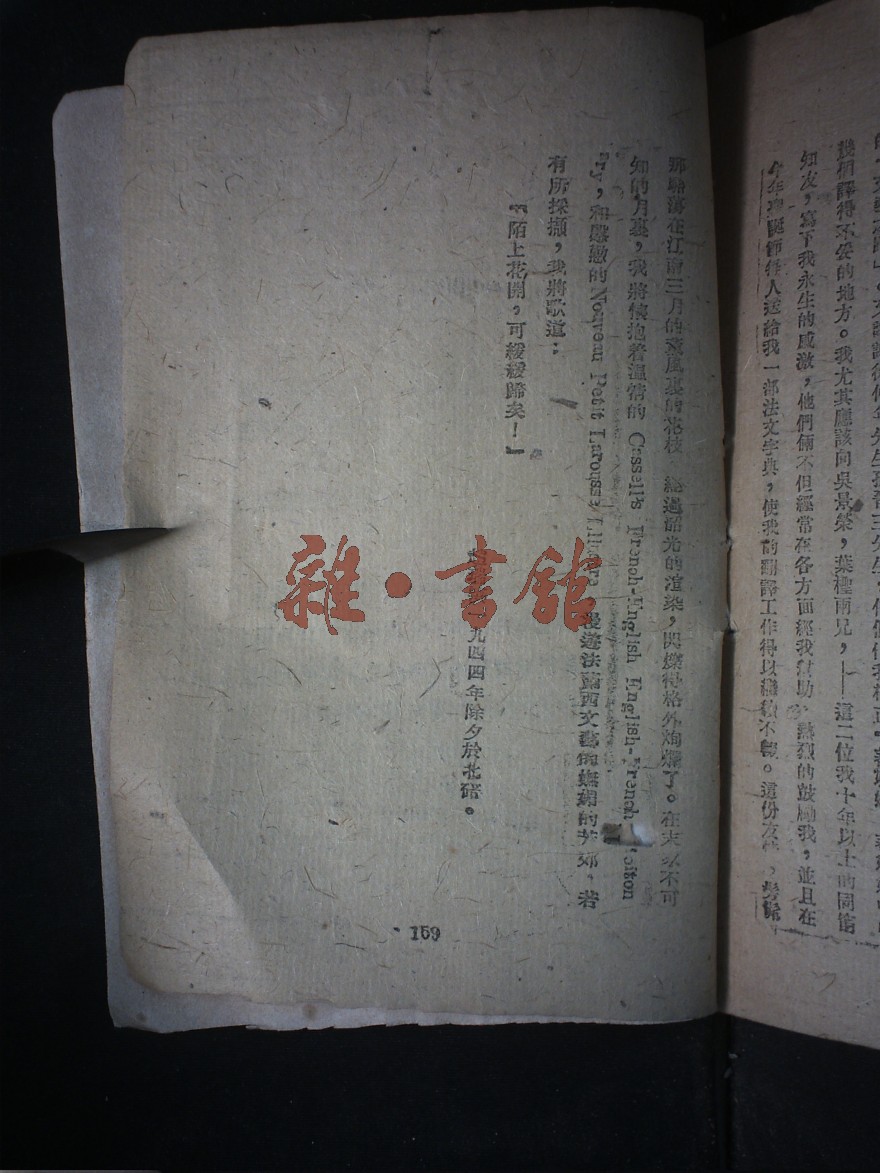 幾個譯得不妥的地方。我尤其應該向吳景榮,葉檉兩兄,——這二位我十年以上的同窗
知友,寫下我永生的感激,他們倆不但經常在各方面經我幫助,熱烈的鼓勵我,並且在
今年聖誕節每人送給我一部法文字典,使我的翻譯工作得以繼續不輟。這份友
那駘蕩在江南三月的薰風裏的花枝 經過韶光的渲染,閃爍得格外絢爛了。在
不可
知的月裏,我將懷抱着溫情的 Cassell's French-English English-French
和慇懃的 Nouveau Petit Laroqsse
漫遊法蘭西文藝的嫵媚的芳郊,若
有所採擷,我將歌道:
『陌上花開,可緩緩歸矣!』
九四四年除夕於北碚。
159
雜·書館